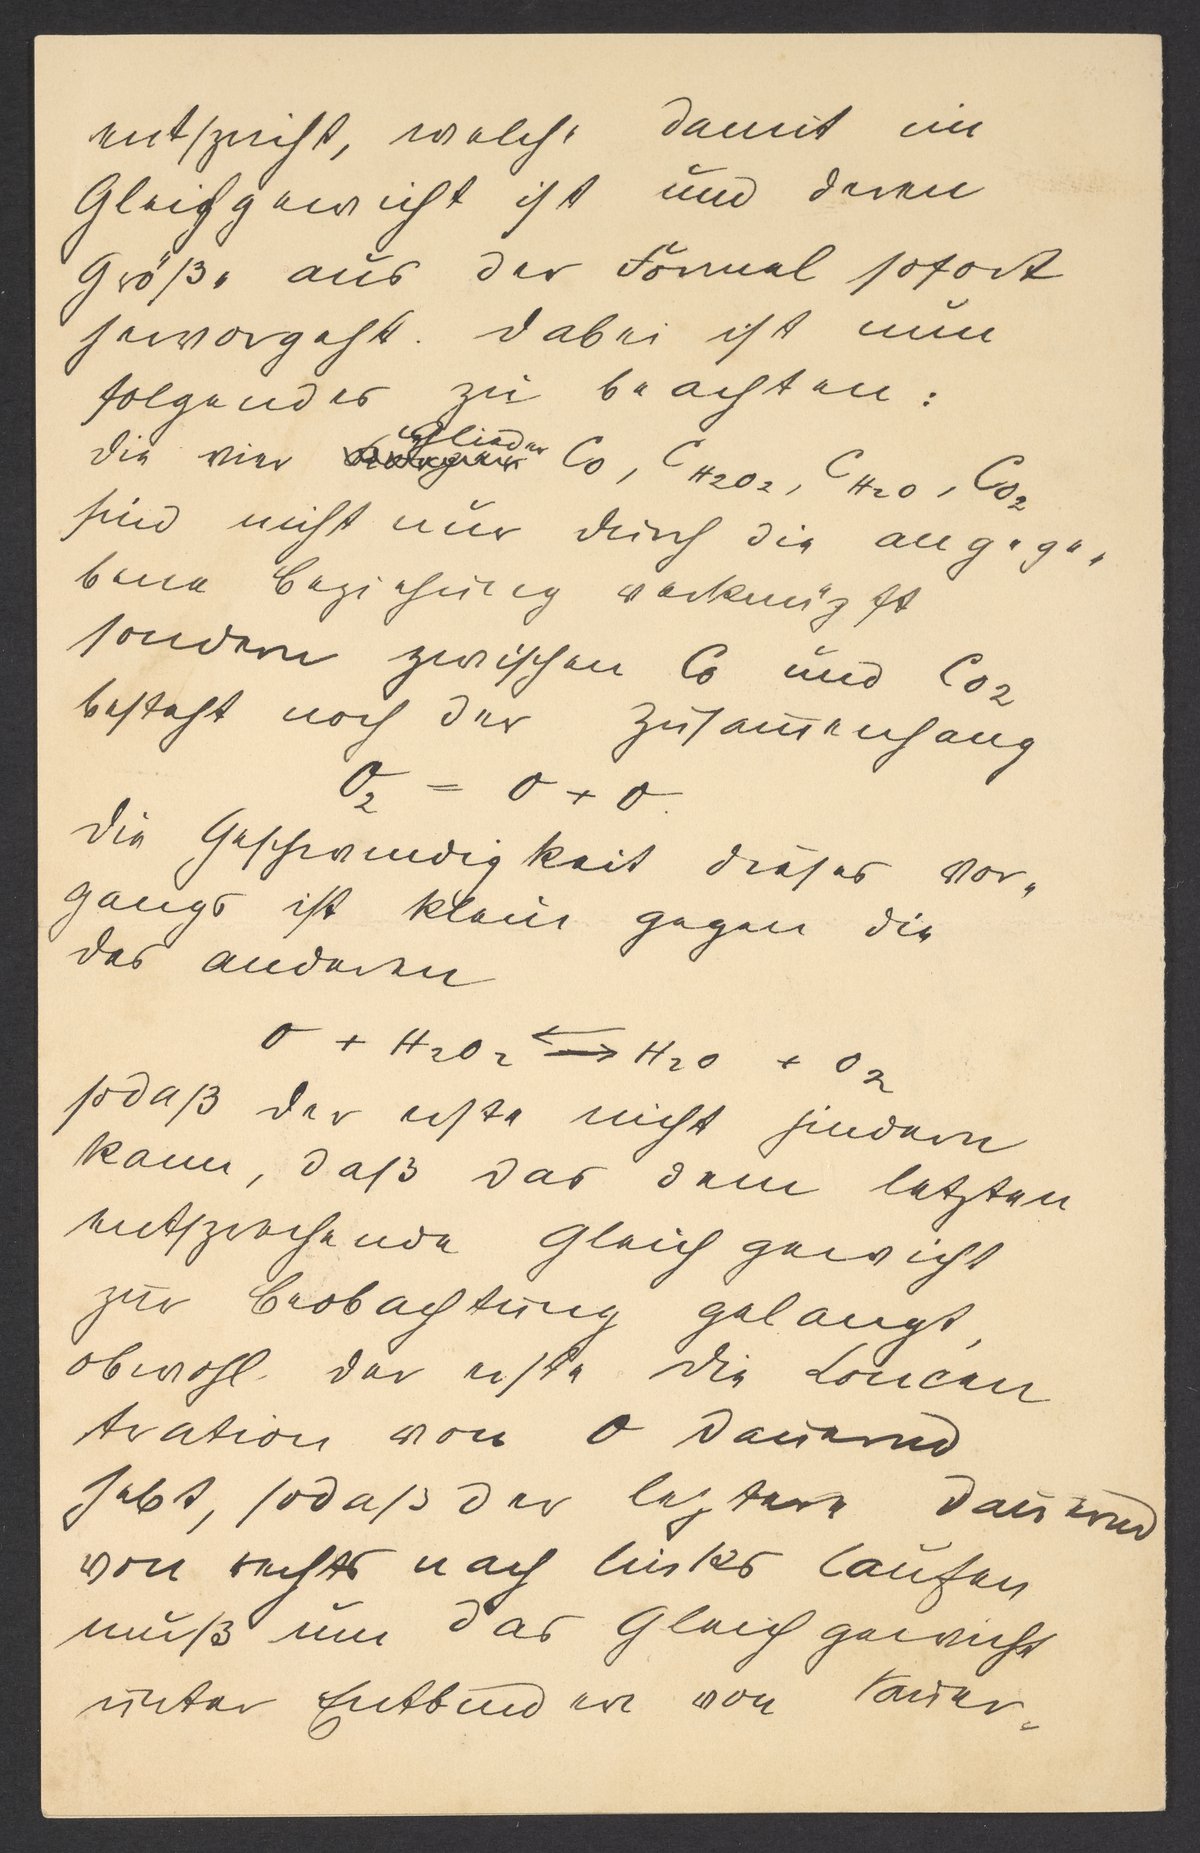 entspricht, welche damit im
Gleichgewicht ist und deren
Größe aus der Formel sofort
hervorgeht. Dabei ist nun
folgendes zu beachten:
Die vier Glieder CO, CH2O2, CH2O, CO2
sind nicht nur durch die angege-
bene Beziehung verknüpft
sondern zwischen CO und CO2
besteht noch der Zusammenhang
O2 = O + O.
Die Geschwindigkeit dieses Vor-
gangs ist klein gegen die
des anderen
O + H2O2 ⇆ H2O + O2
sodaß der erste nicht hindern
kann, daß das dem letzten
entsprechende Gleichgewicht
zur Beobachtung gelangt,
obwohl der erste die Concen
tration von O dauernd
hebt, sodaß der letztere dauernd
von rechts nach links laufen
muß um das Gleichgewicht
unter Entbinden von Sauer-